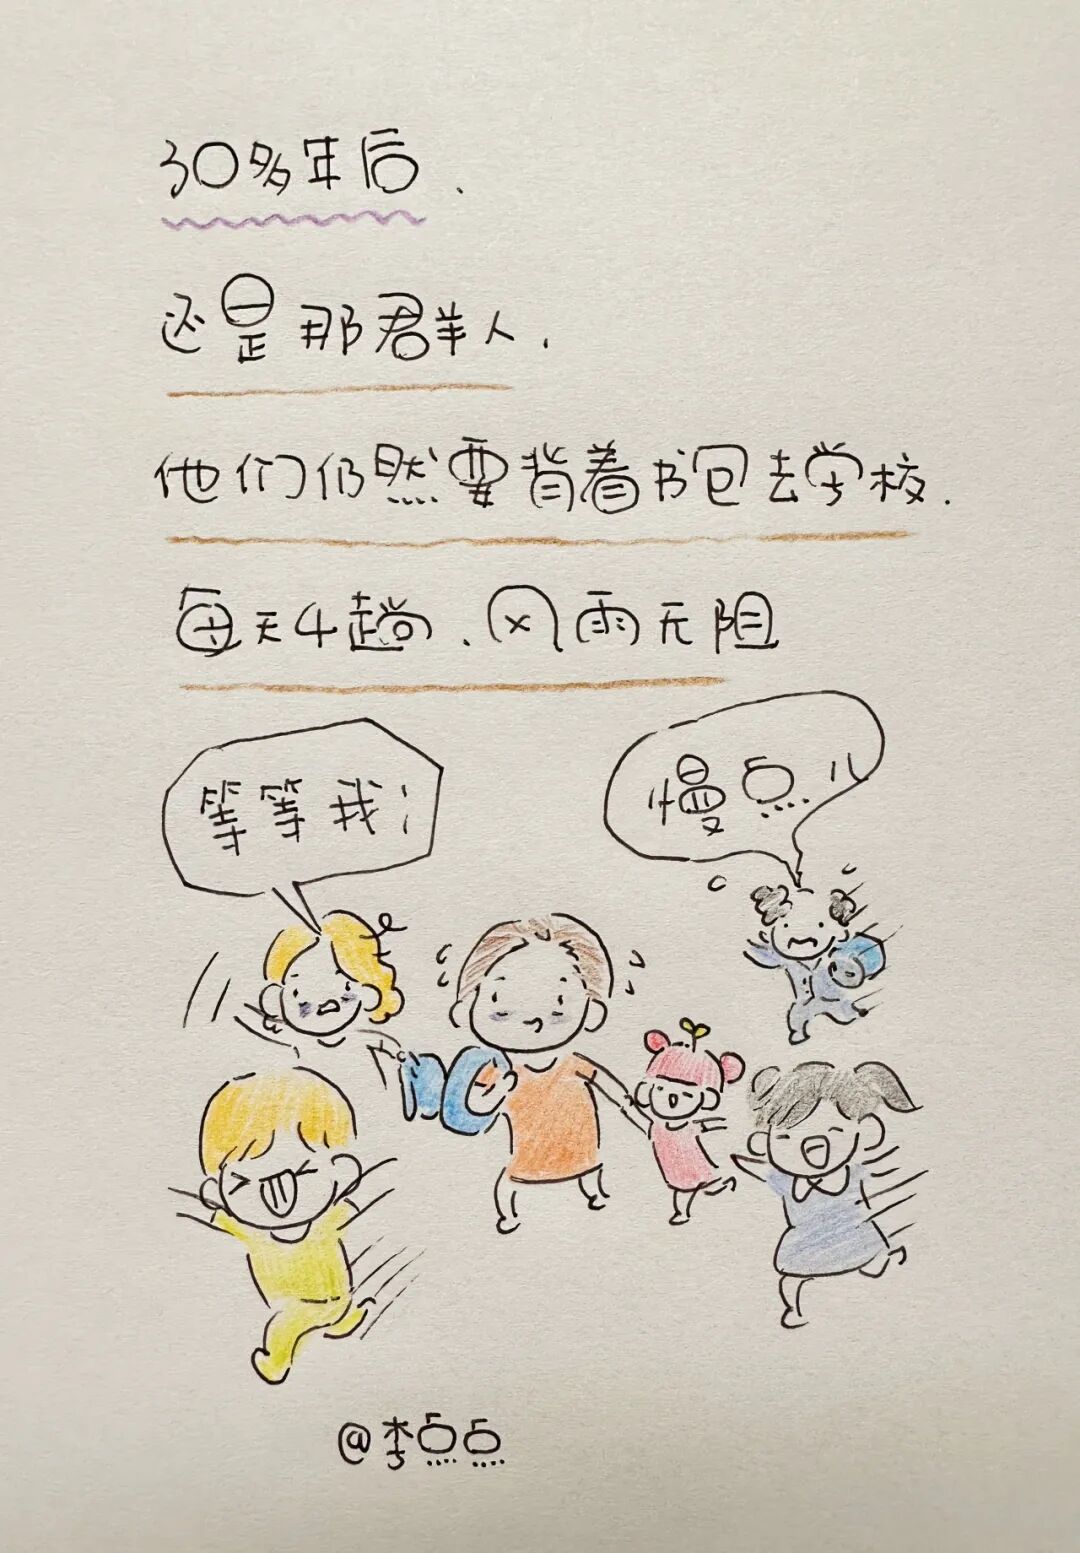 30多年后.
还是那群人.
他们仍然要背着书包去学校.
每天4趟.风雨无阻
等等我!
慢点儿
@李点点